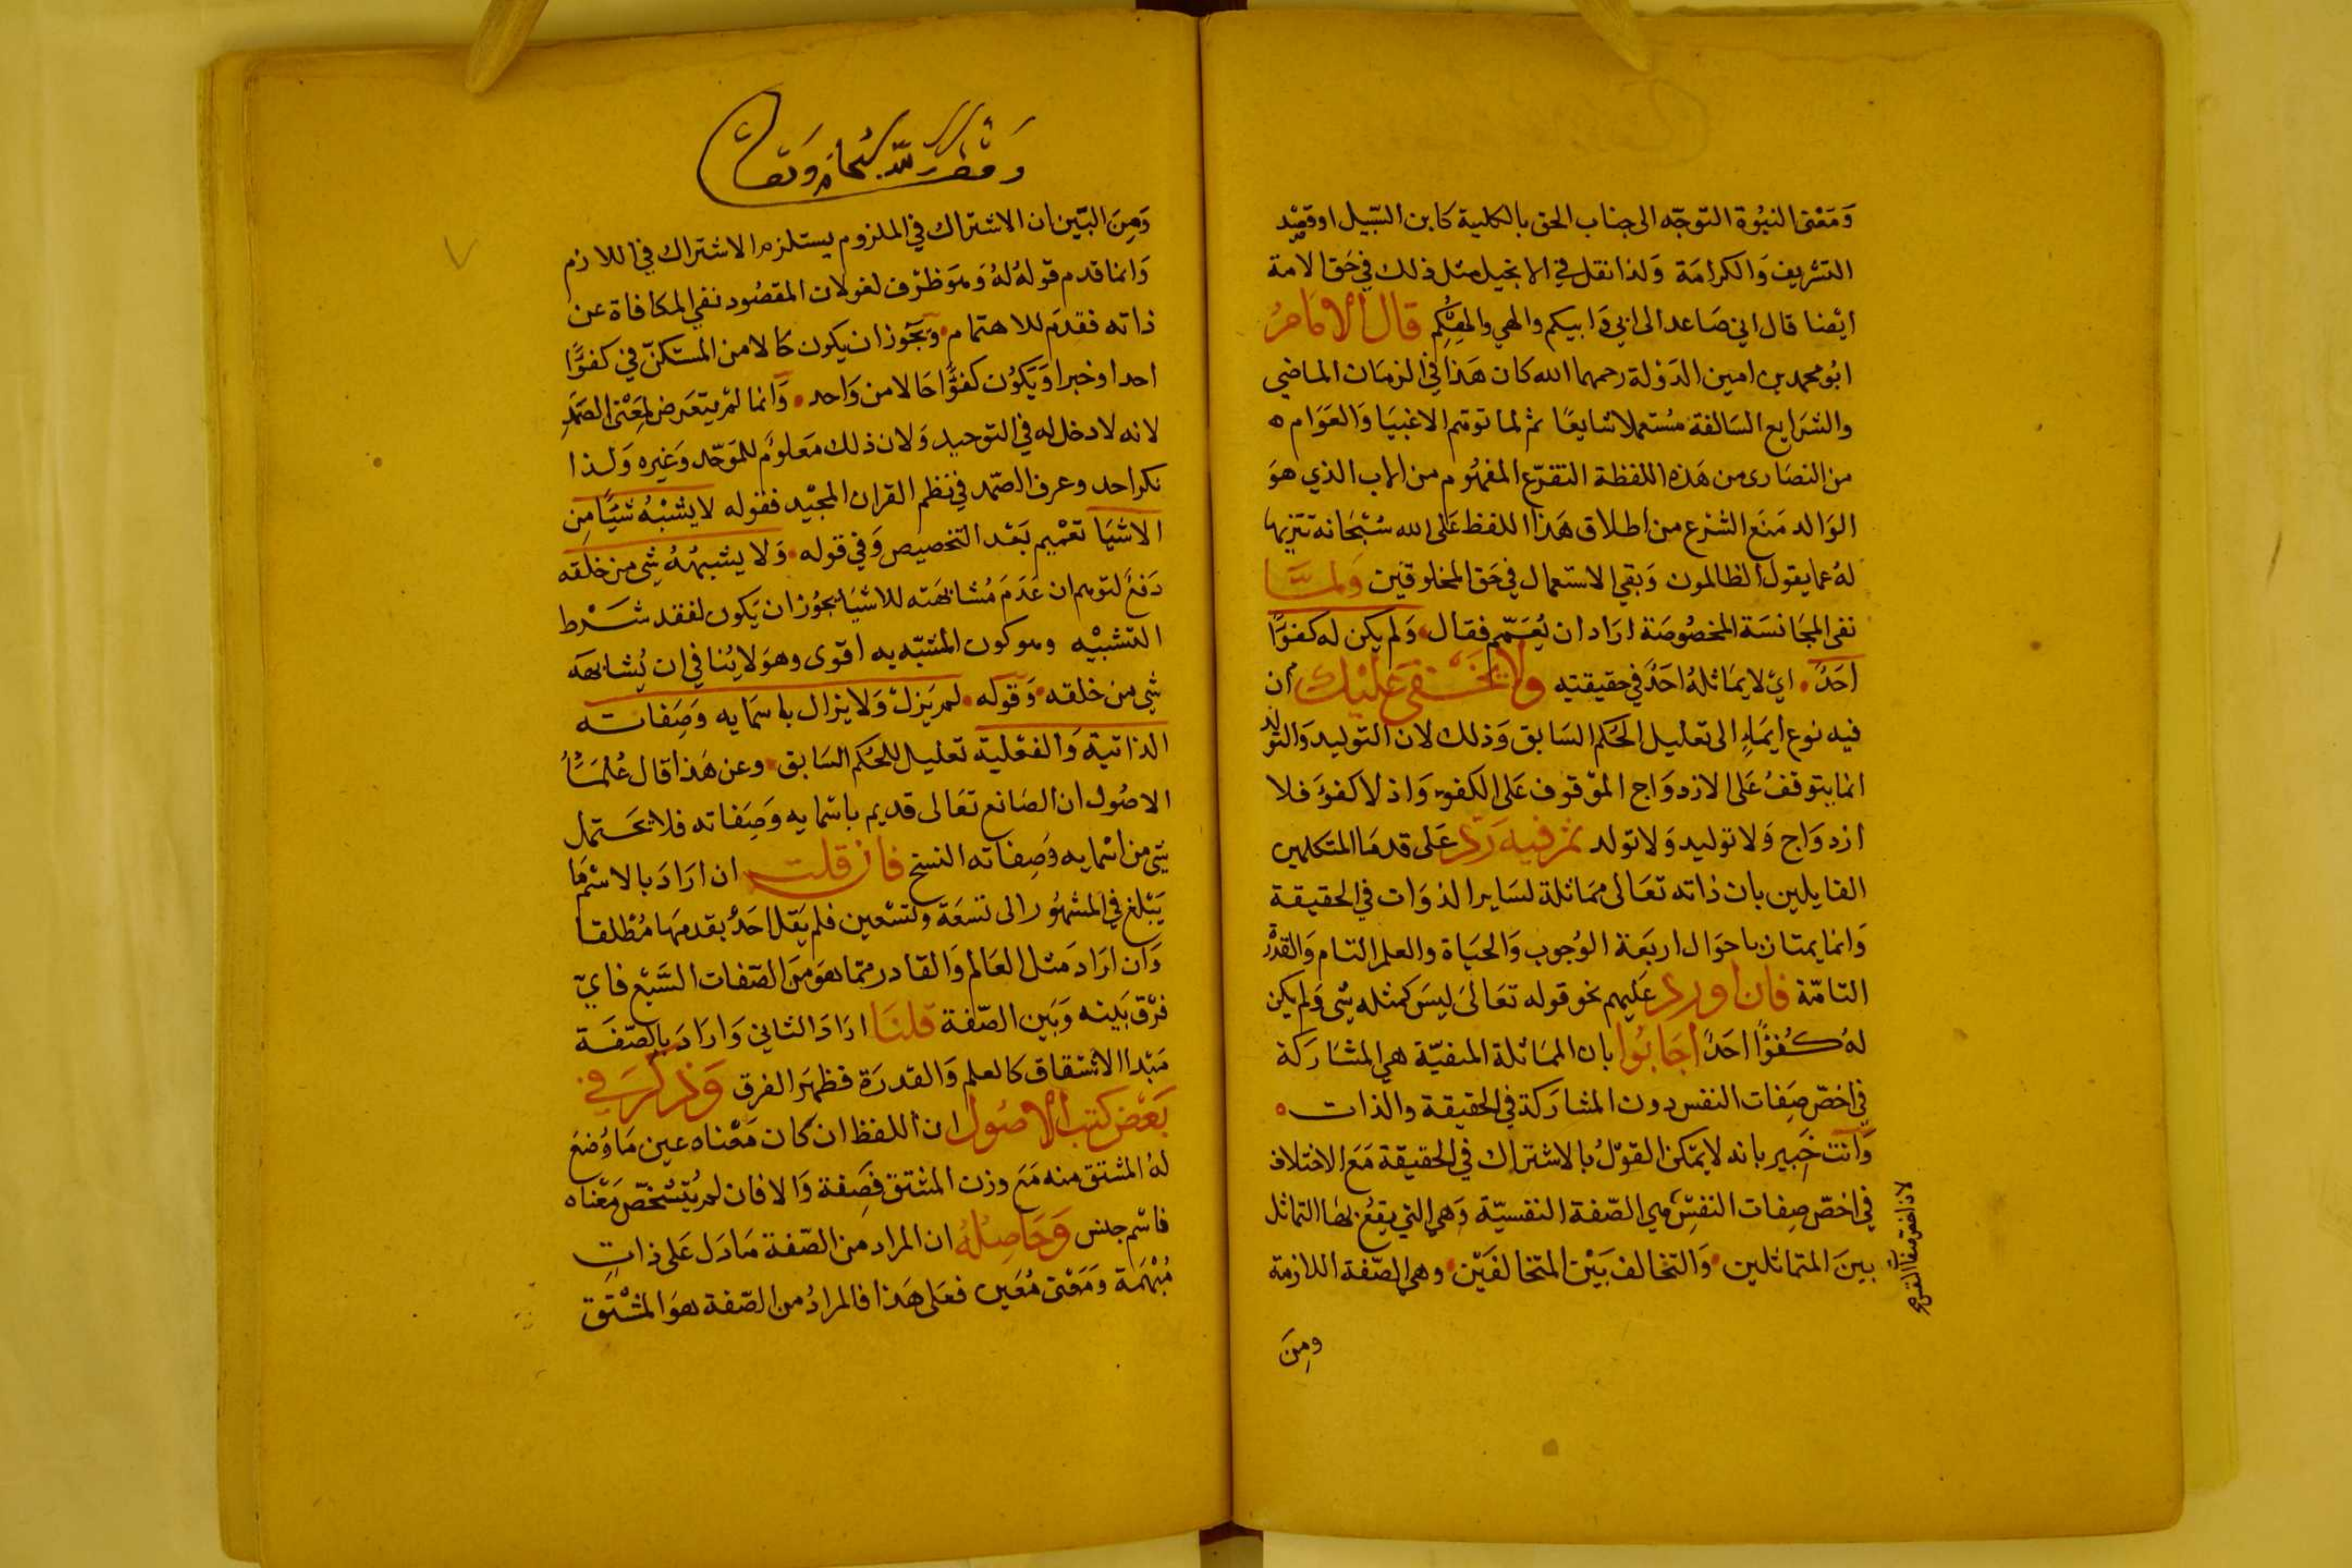 ومعنى النبوة التوجه الى جناب الحق بالكلية كابن السبيل او قصد
التشريف والكرامة ولذا نقل في الانجيل مثل ذلك في حق الامة
ايضا قال اني صاعد الى ابي وابيكم والهي والهكم قال الامام
ابو محمد بن امين الدولة رحمهما الله كان هذا في الزمان الماضي
والشرايع السالفة مستعملا شايعا ثم لما توهم الاغبيا والعوام
من النصارى من هذه اللفظة التفرع المفهوم من الاب الذي هو
الوالد منع الشرع من اطلاق هذا اللفظ على الله سبحانه تنزيها
له عما يقول الظالمون وبقي الاستعمال في حق المخلوقين ولما
نفى المجانسة المخصوصة اراد ان يعمم فقال ولم يكن له كفوا
احد اي لا يماثله احد في حقيقته ولا يخفى عليك ان
فيه نوع ايماء الى تعليل الحكم السابق وذلك لان التوليد والتولد
انما يتوقف على الازدواج الموقوف على الكفو واذ لا كفو فلا
ازدواج ولا توليد ولا تولد ثم فيه رد على قدما المتكلمين
القايلين بان ذاته تعالى مماثلة لساير الذوات في الحقيقة
وانما يمتاز باحوال اربعة الوجوب والحياة والعلم التام والقدرة
التامة فان اورد عليهم نحو قوله تعالى ليس كمثله شي ولم يكن
له كفوا احد اجابوا بان المماثلة المنفية هي المشاركة
في اخص صفات النفس دون المشاركة في الحقيقة والذات
وانت خبير بانه لا يمكن القول بالاشتراك في الحقيقة مع الاختلاف
في اخص صفات النفس هي الصفة النفسية وهي التي يقع بها التماثل
بين المتماثلين والتخالف بين المتخالفين وهي الصفة اللازمة
لان اخص صفات النفس
ومن
ومن البين ان الاشتراك في الملزوم يستلزم الاشتراك في اللازم
وانما قدم قوله له وهو ظرف لغو لان المقصود نفي المكافاة عن
ذاته فقدم للاهتمام ويجوز ان يكون حالا من المستكن في كفوا
احد او خبرا ويكون كفوا حالا من واحد وانما لم يتعرض لمعنى الصمد
لانه لا دخل له في التوحيد ولان ذلك معلوم للموحد وغيره ولذا
نكر احد وعرف الصمد في نظم القران المجيد فقوله لا يشبه شيئا من
الاشيا تعميم بعد التخصيص وفي قوله ولا يشبهه شي من خلقه
دفع لتوهم ان عدم مشابهته للاشيا يجوز ان يكون لفقد شرط
التشبيه وهو كون المشبه به اقوى وهو لا ينافي ان يشابهه
شي من خلقه وقوله لم يزل ولا يزال باسمايه وصفاته
الذاتية والفعلية تعليل للحكم السابق وعن هذا قال علماء
الاصول ان الصانع تعالى قديم باسمايه وصفاته فلا يحتمل
شي من اسمايه وصفاته النسخ فان قلت ان اراد بالاسم ما
يبلغ في المشهور الى تسعة وتسعين فلم يقل احد بقدمها مطلقا
وان اراد مثل العالم والقادر مما هو من الصفات السبع فاي
فرق بينه وبين الصفة قلنا اراد الثاني واراد بالصفة
مبدا الاشتقاق كالعلم والقدرة فظهر الفرق وذكر في
بعض كتب الاصول ان اللفظ ان كان معناه عين ما وضع
له المشتق منه مع وزن المشتق فصفة والا فان لم يتشخص معناه
فاسم جنس وحاصله ان المراد من الصفة ما دل على ذات
مبهمة ومعنى معين فعلى هذا فالمراد من الصفة هو المشتق